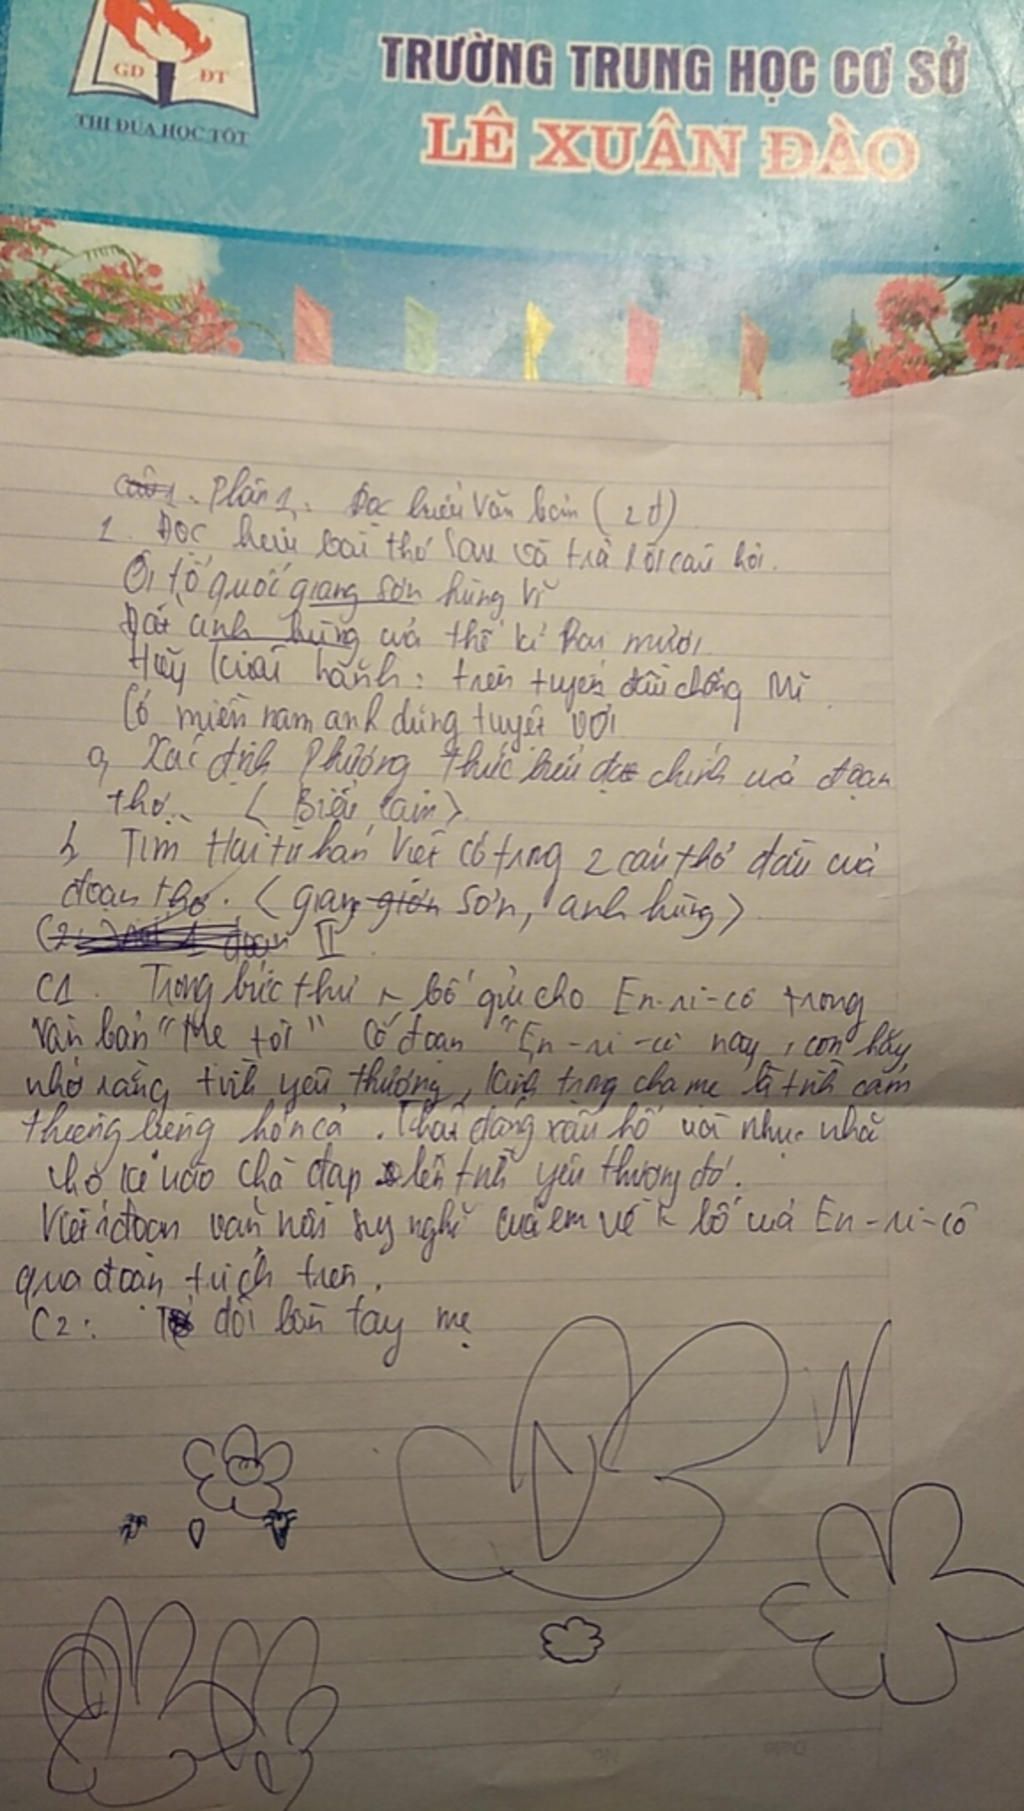 GD ĐT
THI ĐUA HỌC TỐT
TRƯỜNG TRUNG HỌC CƠ SỞ
LÊ XUÂN ĐÀO
Phần 1. Đọc hiểu văn bản (2đ)
1. Đọc hiểu bài thơ sau và trả lời câu hỏi.
Ôi tổ quốc giang sơn hùng vĩ
Đất anh hùng của thế kỉ hai mươi
Hãy kiêu hãnh: trên tuyến đầu chống Mĩ
Có miền nam anh dũng tuyệt vời
a, Xác định Phương thức biểu đạt chính của đoạn
thơ. < Biểu cảm>
b, Tìm Hai từ hán Việt có trong 2 câu thơ đầu của
đoạn thơ. < giang sơn, anh hùng>
II
C1. Trong bức thư bố gửi cho En-ri-cô trong
văn bản "Mẹ tôi" Có đoạn "En-ri-cô này, con hãy
nhớ rằng tình yêu thương, kính trọng cha mẹ là tình cảm
thiêng liêng hơn cả. Thật đáng xấu hổ và nhục nhã
cho kẻ nào chà đạp lên tình yêu thương đó.
Viết 1 đoạn văn nói suy nghĩ của em về bố của En-ri-cô
qua đoạn trích trên.
C2: đôi bàn tay mẹ